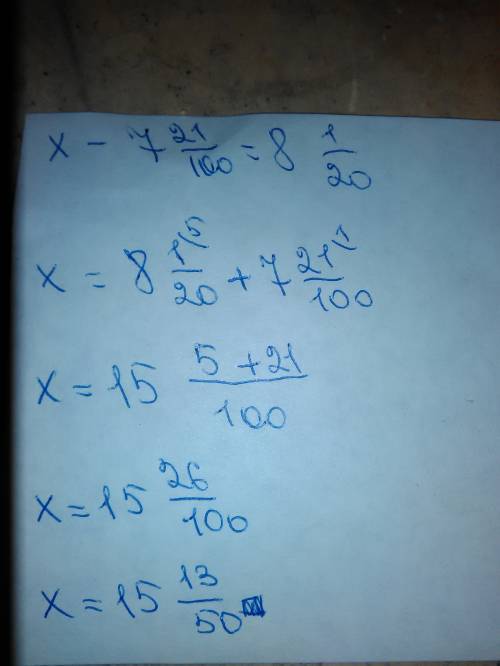 x - 7 21/100 = 8 1/20
x = 8 1/20 ⁵ + 7 21/100 ¹
x = 15 5+21/100
x = 15 26/100
x = 15 13/50